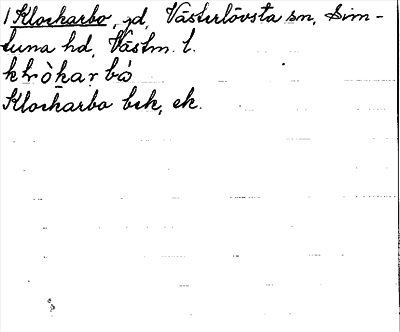 1 Klockarbo, jd, Västerlövsta sn, Sim-
tuna hd, Västm. l.
klròkar bò
Klockarbo bek, ek.